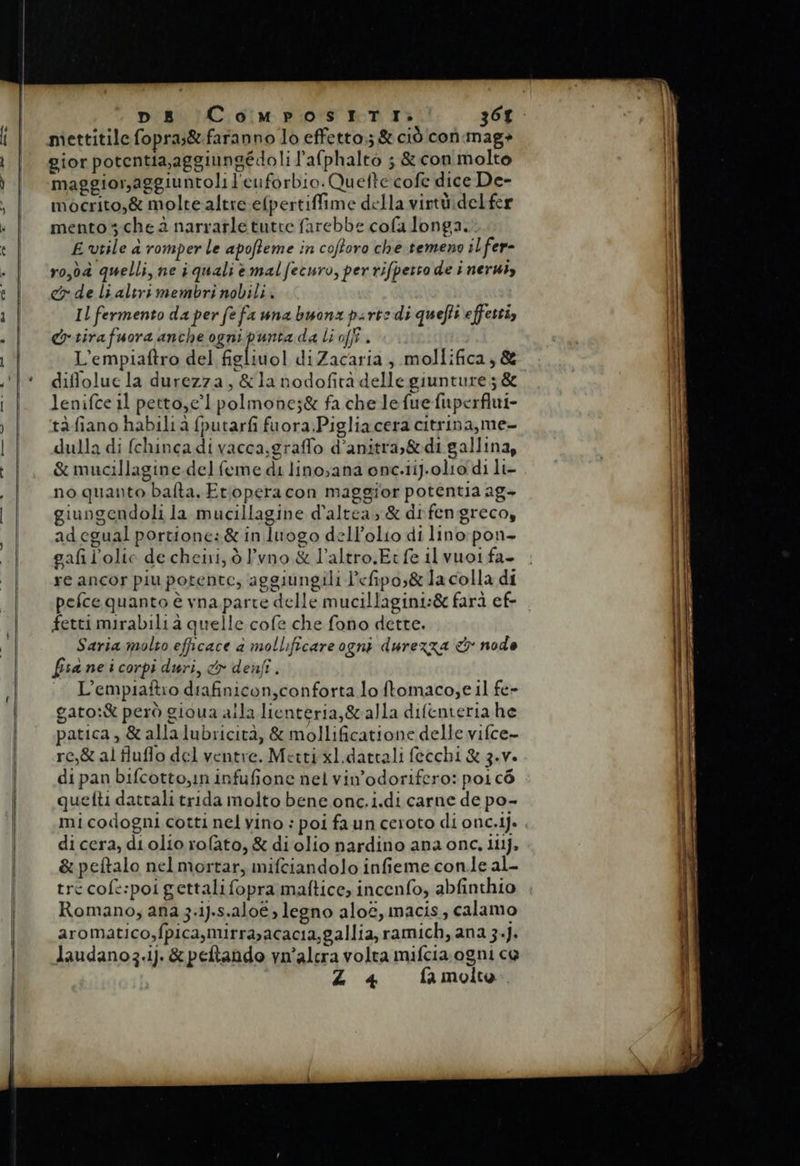 DE COMPOSITI. 361
mettitile ſopra;& faranno lo effetto; & ciò con mag-
gior potentia,aggiungẽdoli l'aſphalto ; & con molto
maggior,aggiuntoli l'euforbio. Queſte cofe dice De-
mocrito,& molte altre eſpertiſſime della virtù del fer
mento; che à narrarle tutte farebbe cofa longa.
E vtile à romper le apoſteme in coſtoro che temeno il fer-
ro,òà quelli, ne i quali è mal ſecuro, per riſpetto de i nerui,
& de li altri membri nobili.
Il fermento da per ſe fa una buona parte di queſti effetti,
& tira fuora anche ogni punta da li oſſi.
L'empiaſtro del figliuol di Zacaria, mollifica, &
diſſolue la durezza, & la nodoſità delle giunture; &
leniſce il petto,e'l polmone;& fa che le ſue ſuperflui-
tà ſiano habili à ſputarſi fuora.Piglia cera citrina,me-
dulla di ſchinca di vacca,graſſo d'anitra,& di gallina,
& mucillagine del ſeme di lino,ana onc.iij.olio di li-
no quanto baſta. Et opera con maggior potentia ag-
giungendoli la mucillagine d'altea, & di fen greco,
ad egual portione: & in luogo dell'olio di lino pon-
gaſi l'olio de cheiri, ò l'vno & l'altro.Et ſe il vuoi fa-
re ancor piu potente, aggiungili l'eſipo,& la colla di
peſce quanto è vna parte delle mucillagini:& farà ef-
fetti mirabili à quelle cofe che ſono dette.
Saria molto efficace à mollificare ogni durezza & nodo
ſità ne i corpi duri, & denſi.
L'empiaſtro diafinicon,conforta lo ſtomaco,e il fe-
gato:& però gioua alla lienteria,& alla diſenteria he
patica, & alla lubricità, & mollificatione delle viſce-
re,& al fluſſo del ventre. Metti xl.dattali ſecchi & ʒ.v.
di pan biſcotto,in infuſione nel vin'odorifero: poi cõ
queſti dattali trida molto bene onc.i.di carne de po-
mi codogni cotti nel vino : poi fa un ceroto di onc.ij.
di cera, di olio roſato, & di olio nardino ana onc. iiij.
& peſtalo nel mortar, miſciandolo inſieme con le al-
tre cofe:poi gettali ſopra maſtice, incenſo, abſinthio
Romano, ana ʒ.ij.s.aloè, legno aloè, macis, calamo
aromatico,ſpica,mirra,acacia,gallia, ramich, ana ʒ.j.
laudano ʒ.ij. & peſtando vn'altra volta miſcia ogni co
Z 4 ſa molto